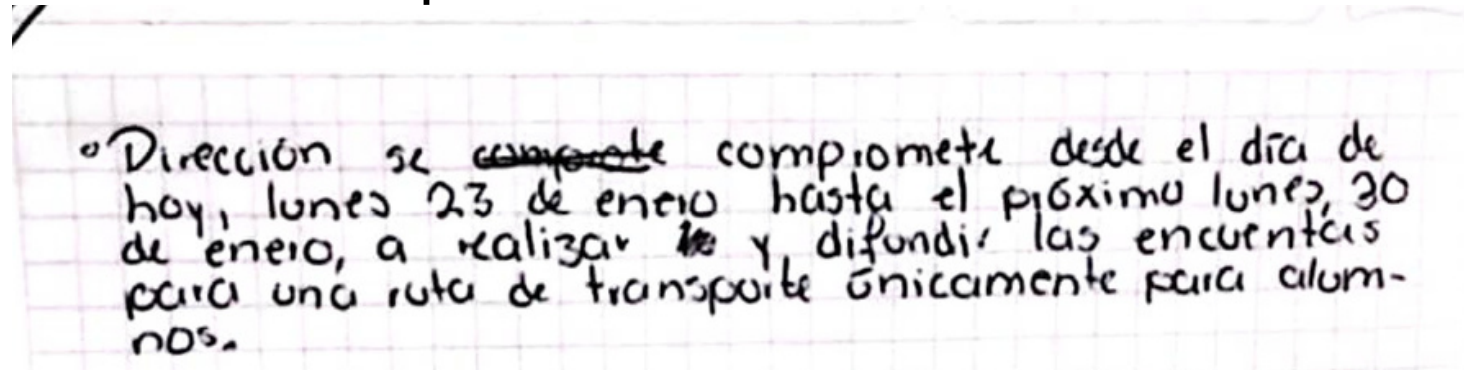 ° Dirección se compromete desde el día de
hoy, lunes 23 de enero hasta el próximo lunes, 30
de enero, a realizar y difundir las encuentas
para una ruta de transporte únicamente para alum-
nos.